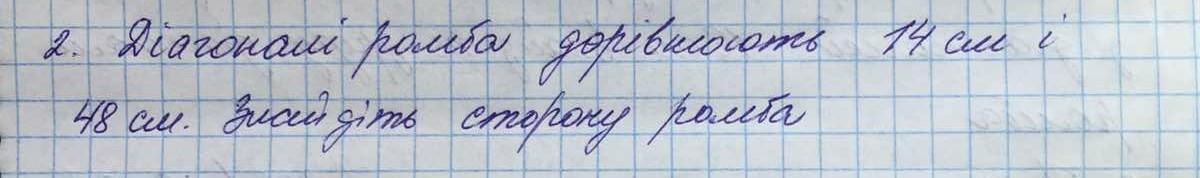 2. Діагоналі ромба дорівнюють 14 см і
48 см. Знайдіть сторону ромба